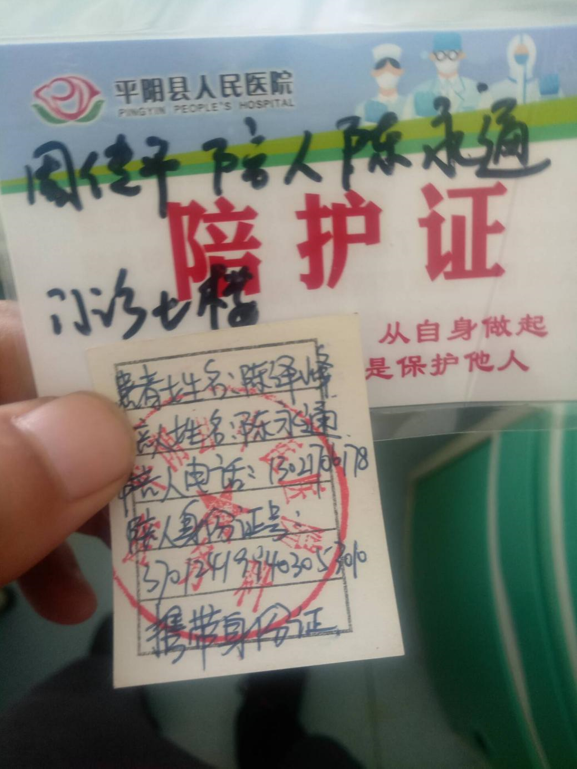 平阴县人民医院
PINGYIN PEOPLE'S HOSPITAL
周佳平 陪人 陈永通
陪护证
门诊七楼
从自身做起
是保护他人
患者姓名:陈泽峰
陪人姓名:陈永通
陪人电话:
陪人身份证号:
携带身份证